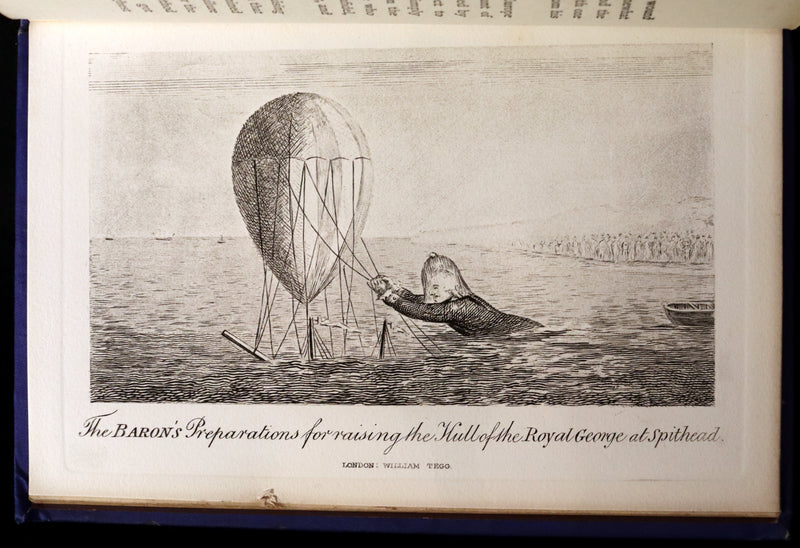 The BARON'S Preparations for raising the Hull of the Royal George at Spithead.
LONDON: WILLIAM TEGG.